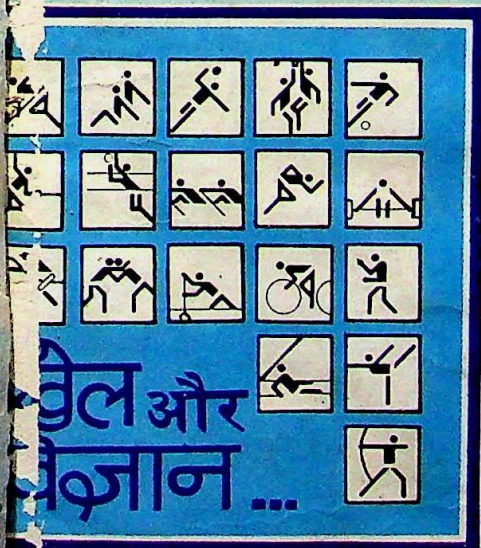 खेल और
विज्ञान ...